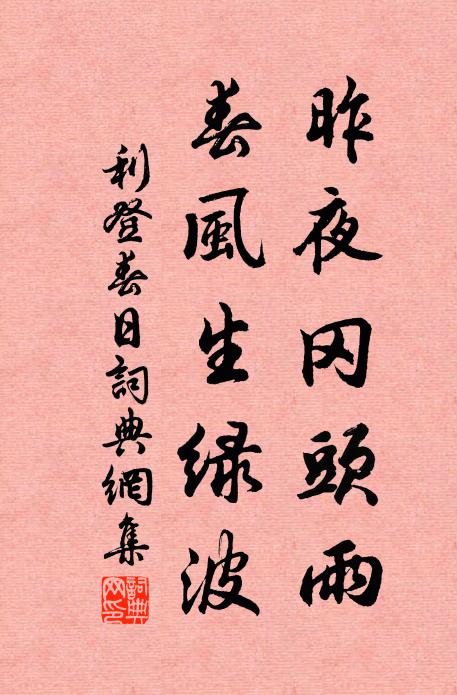 昨夜冈頭雨
春風生緑波
利登春日詞典網集
詞典網印